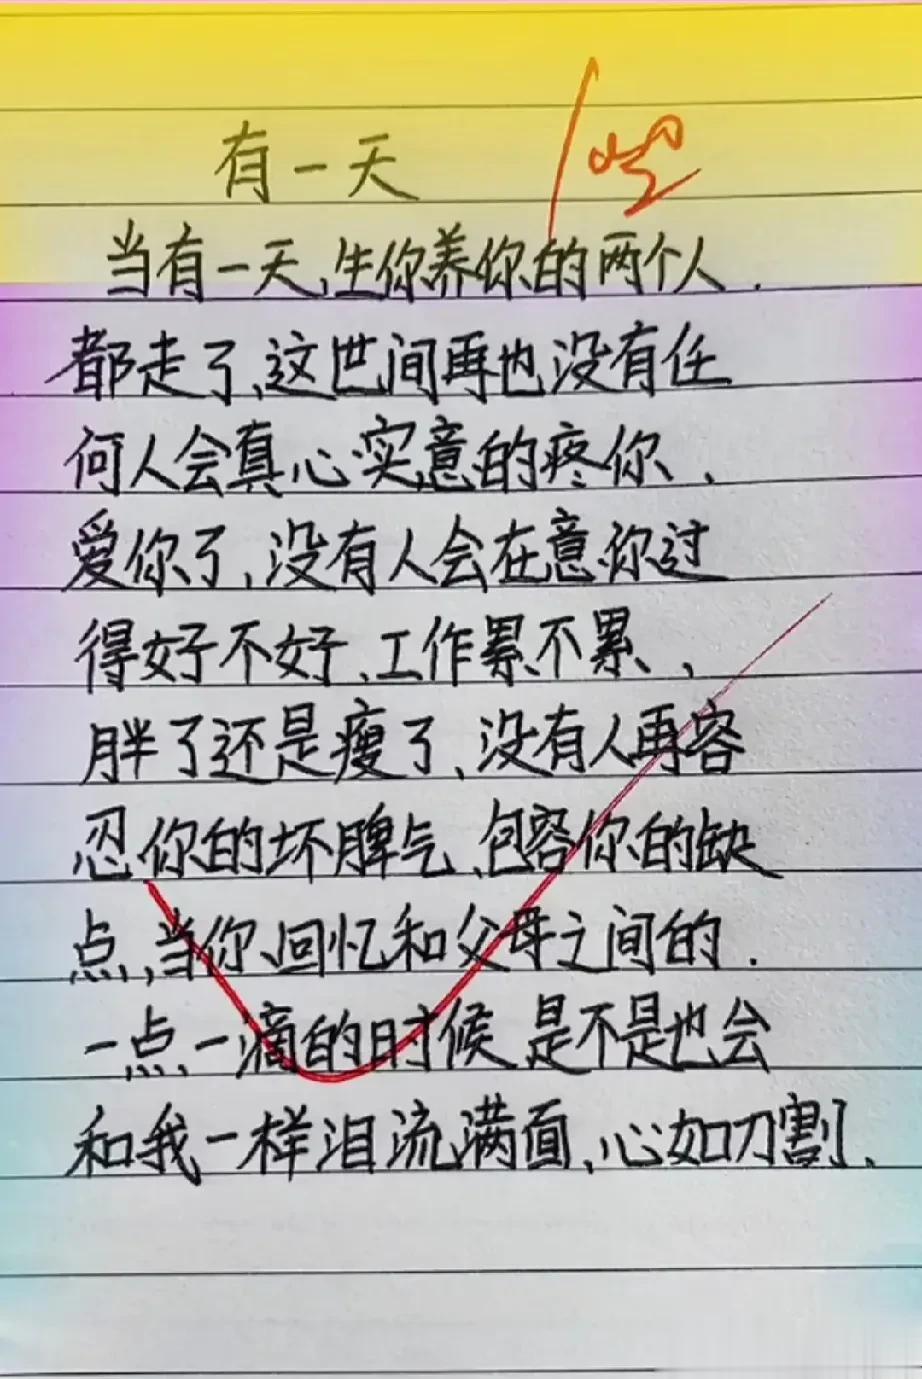 有一天
当有一天、生你养你的两个人.
都走了、这世间再也没有任
何人会真心实意的疼你、、
爱你了,没有人会在意你过
得好不好、工作累不累、、
胖了还是瘦了、没有人再容
忍你的坏脾气、包容你的缺
点,当你回忆和父母之间的.
一点一滴的时候,是不是也会
和我一样泪流满面、心如刀割、